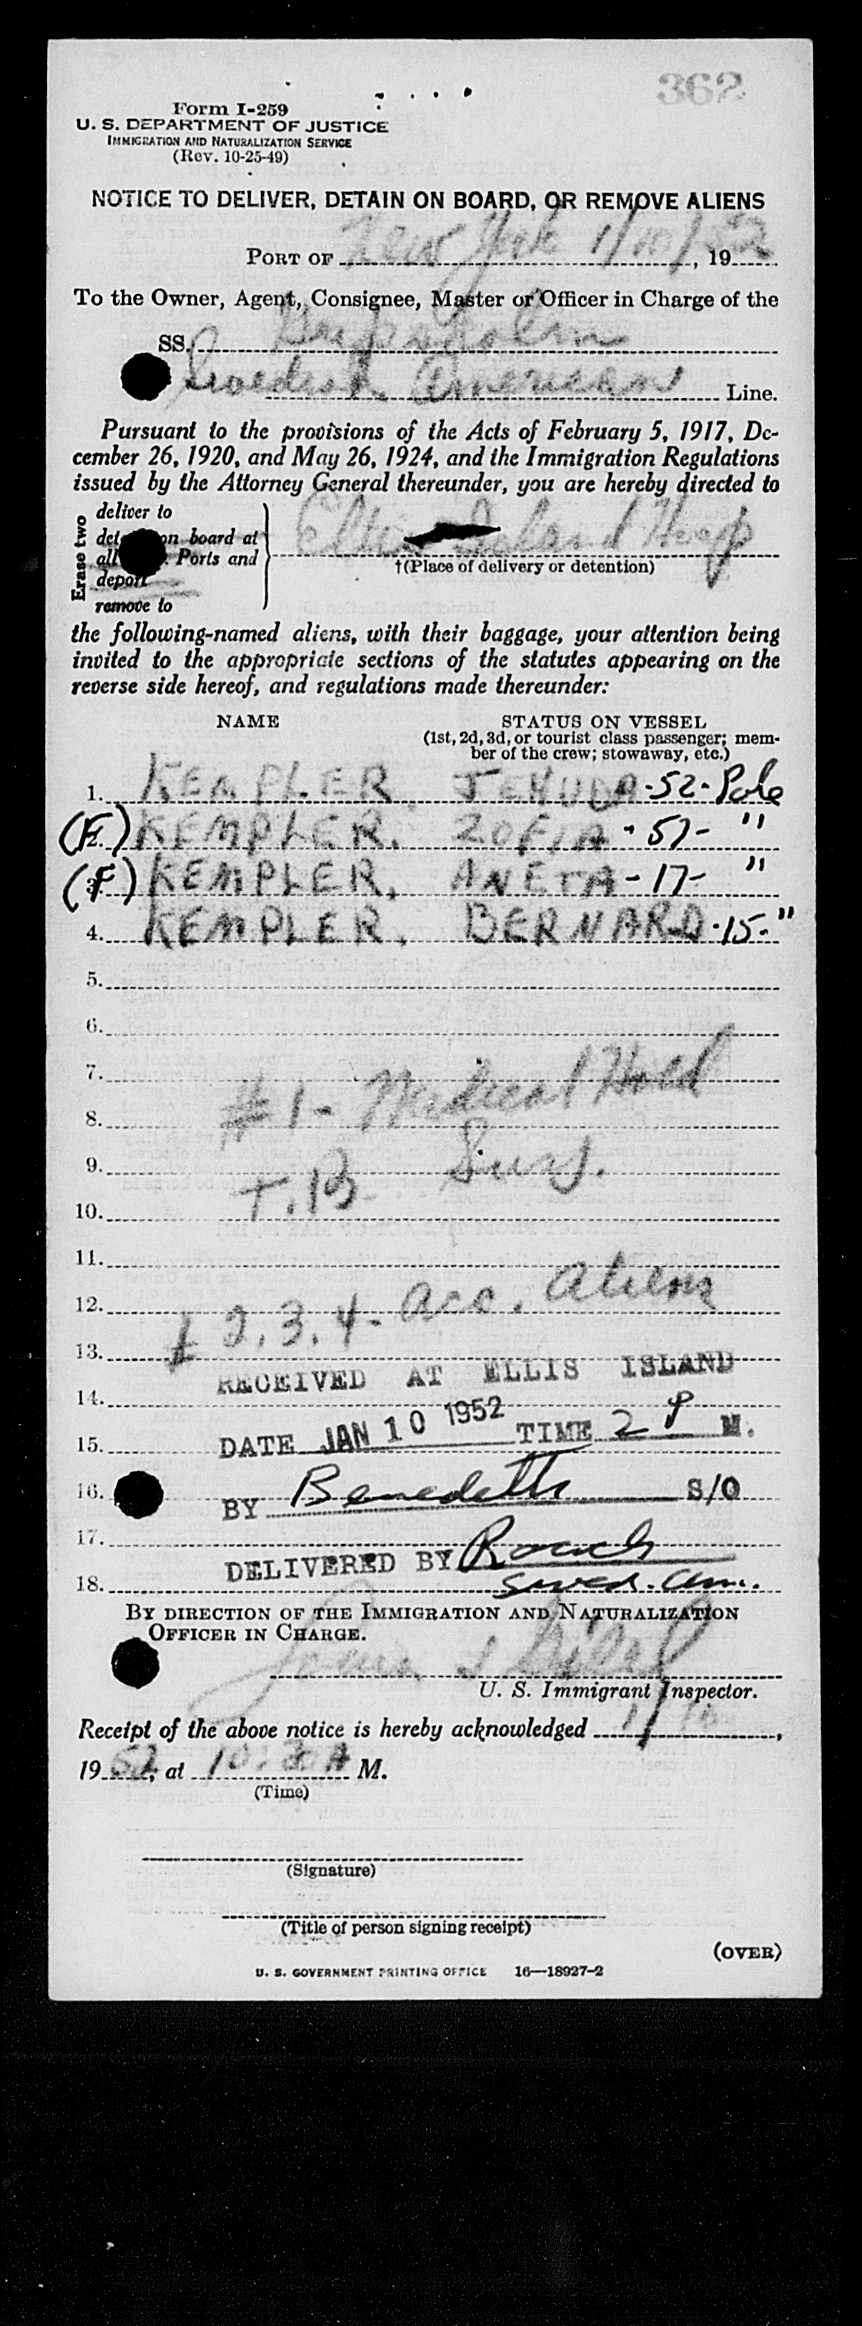 362
Form I-259
U. S. DEPARTMENT OF JUSTICE
IMMIGRATION AND NATURALIZATION SERVICE
(Rev. 10-25-49)
NOTICE TO DELIVER, DETAIN ON BOARD, OR REMOVE ALIENS
PORT OF New York 1/10/52, 19
To the Owner, Agent, Consignee, Master or Officer in Charge of the
SS.
Swedish American Line.
Pursuant to the provisions of the Acts of February 5, 1917, De-
cember 26, 1920, and May 26, 1924, and the Immigration Regulations
issued by the Attorney General thereunder, you are hereby directed to
Erase two
deliver to
on board at
all Ports and
deport
remove to
Ellis Island Hosp
†(Place of delivery or detention)
the following-named aliens, with their baggage, your attention being
invited to the appropriate sections of the statutes appearing on the
reverse side hereof, and regulations made thereunder:
NAME STATUS ON VESSEL
(1st, 2d, 3d, or tourist class passenger; mem-
ber of the crew; stowaway, etc.)
1. KEMPLER, JEHUDA-52-Pole
(F) 2. KEMPLER, ZOFIA-57- "
(F) 3. KEMPLER, ANETA-17- "
4. KEMPLER, BERNARD-15-"
5.
6.
7.
#1- Medical Hold
8.
9. Surg.
T.B
10.
11.
12. Acc. Aliens
# 2, 3, 4-
13.
RECEIVED AT ELLIS ISLAND
14.
DATE JAN 10 1952 TIME 2 P M.
15.
16.
BY Benedetti S/O
17.
DELIVERED BY Roach
18. Swed. Am.
BY DIRECTION OF THE IMMIGRATION AND NATURALIZATION
OFFICER IN CHARGE.
U. S. Immigrant Inspector.
Receipt of the above notice is hereby acknowledged 1/10,
1952, at 10:30 A M.
(Time)
(Signature)
(Title of person signing receipt)
(OVER)
U. S. GOVERNMENT PRINTING OFFICE 16—18927-2